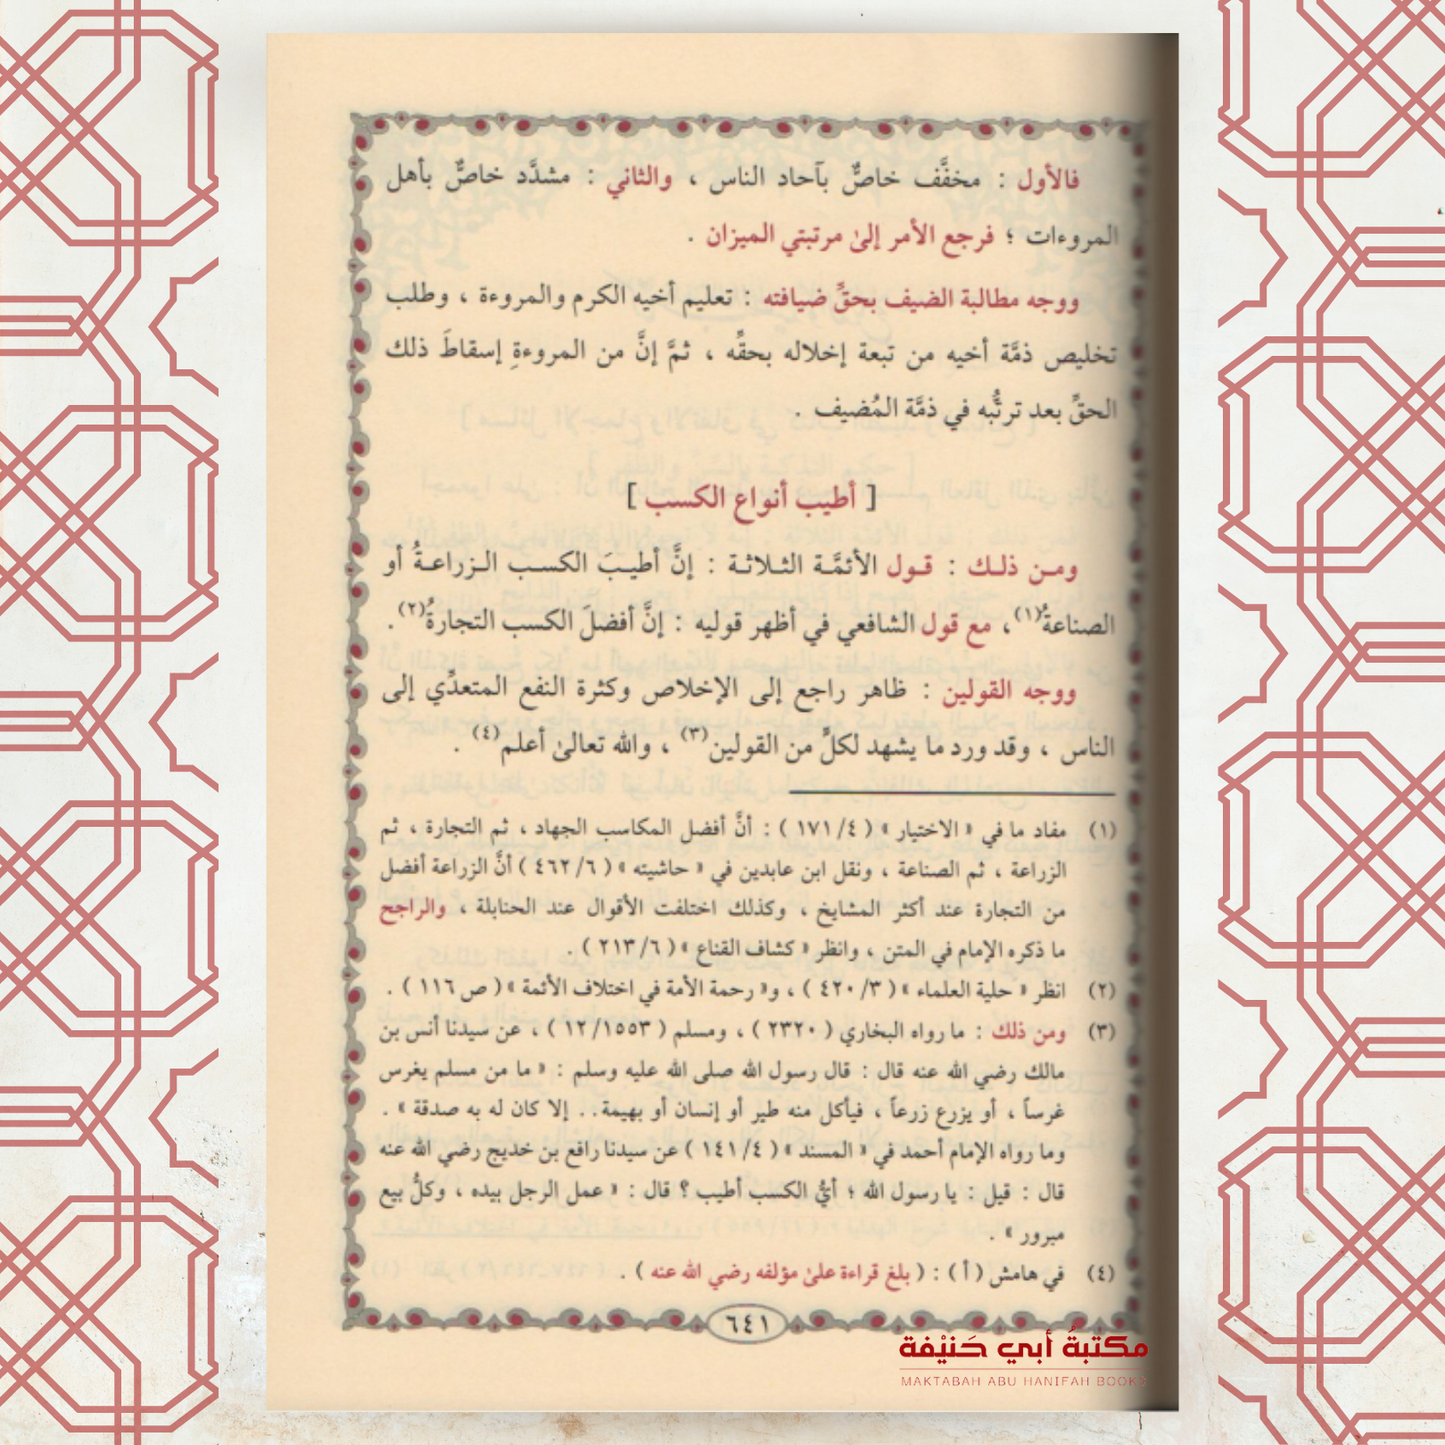 فالأول : مخفَّف خاصٌّ بآحاد الناس ، والثاني : مشدَّد خاصٌّ بأهل
المروءات ؛ فرجع الأمر إلىٰ مرتبتي الميزان .
ووجه مطالبة الضيف بحقِّ ضيافته : تعليم أخيه الكرم والمروءة ، وطلب
تخليص ذمَّة أخيه من تبعة إخلاله بحقِّه ، ثمَّ إنَّ من المروءةِ إسقاطَ ذلك
الحقِّ بعد ترتُّبه في ذمَّة المُضيف .
[ أطيب أنواع الكسب ]
ومن ذلك : قول الأئمَّة الثلاثة : إنَّ أطيبَ الكسب الزراعةُ أو
الصناعةُ(١)، مع قول الشافعي في أظهر قوليه : إنَّ أفضلَ الكسب التجارةُ(٢).
ووجه القولين : ظاهر راجع إلى الإخلاص وكثرة النفع المتعدِّي إلى
الناس ، وقد ورد ما يشهد لكلٍّ من القولين(٣) ، والله تعالىٰ أعلم(٤) .
(١) مفاد ما في « الاختيار » ( ١٧١/٤ ) : أنَّ أفضل المكاسب الجهاد ، ثم التجارة ، ثم
الزراعة ، ثم الصناعة ، ونقل ابن عابدين في « حاشيته » ( ٤٦٢/٦ ) أنَّ الزراعة أفضل
من التجارة عند أكثر المشايخ ، وكذلك اختلفت الأقوال عند الحنابلة ، والراجح
ما ذكره الإمام في المتن ، وانظر « كشاف القناع » ( ٢١٣/٦ ) .
(٢) انظر « حلية العلماء » ( ٤٢٠/٣ ) ، و« رحمة الأمة في اختلاف الأئمة » ( ص ١١٦ ) .
(٣) ومن ذلك : ما رواه البخاري ( ٢٣٢٠ ) ، ومسلم ( ١٢/١٥٥٣ ) ، عن سيدنا أنس بن
مالك رضي الله عنه قال : قال رسول الله صلى الله عليه وسلم : « ما من مسلم يغرس
غرساً ، أو يزرع زرعاً ، فيأكل منه طير أو إنسان أو بهيمة.. إلا كان له به صدقة » .
وما رواه الإمام أحمد في « المسند » ( ١٤١/٤ ) عن سيدنا رافع بن خديج رضي الله عنه
قال : قيل : يا رسول الله ؛ أيُّ الكسب أطيب ؟ قال : « عمل الرجل بيده ، وكلُّ بيع
مبرور » .
(٤) في هامش ( أ ) : ( بلغ قراءة علىٰ مؤلفه رضي الله عنه ) .
٦٤١
مكتبة أبي حَنيْفة
MAKTABAH ABU HANIFAH BOOKS